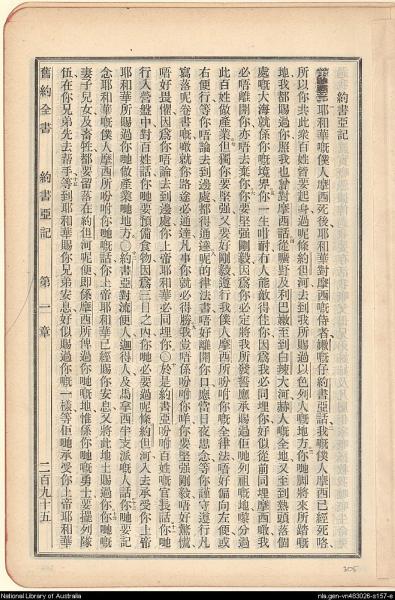 約書亞記
耶和華嘅僕人摩西死後耶和華對摩西嘅侍從嫩嘅仔約書亞話我嘅僕人摩西已經死咯
所以你共此衆百姓皆要起身過呢條約但河去到我所賜過以色列人嘅地方你哋脚將來所踏嘅
地我都賜過你照我也曾對摩西話從曠野及利巴嫩至到白辣大河赫人嘅全地又至到熱頭落個
處嘅大海就係你嘅境界你一生咁耐冇人能敵得住你因爲我必同埋你好似從前同埋摩西噉我
必唔離開你亦唔丟棄你你要堅强剛毅因爲你必定將我所發誓應承賜過佢哋列祖嘅地嚟分過
此百姓做產業但獨你要堅强又要好剛毅遵行我僕人摩西所吩咐你嘅全律法唔好偏向左便或
右便行等你唔論去到邊處都得通達呢的律法書唔好離開你口應當日夜思念等你謹守遵行凡
寫落呢卷書嘅噉就你路途必通達凡事你就必得勝我豈唔係吩咐你咩你要堅强剛毅唔好驚慌
唔好畏懼因爲你唔論去到邊處你上帝耶和華必同埋你○於是約書亞吩咐百姓嘅官長話你哋
行入營盤中對百姓話你哋要預備食物因爲三日之內你哋必要過呢條約但河入去承受你上帝
耶和華所賜過你哋做產業嘅地方○約書亞對流便人迦得人及馬拿西半支派嘅人話你哋要記
念耶和華嘅僕人摩西所吩咐你哋嘅話你上帝耶和華已經賜你安息又將此地土賜過你你嘅
妻子兒女及畜牲都要留落在約但河呢便卽係摩西所俾過你哋嘅地惟係你哋嘅勇士要擺列隊
伍在你兄弟先去幫手等到耶和華賜你兄弟安息好似賜過你嘅一樣等佢哋承受你上帝耶和華
舊約全書 約書亞記 第一章 二百九十五
305
National Library of Australia
nla.gen-vn463026-s157-e